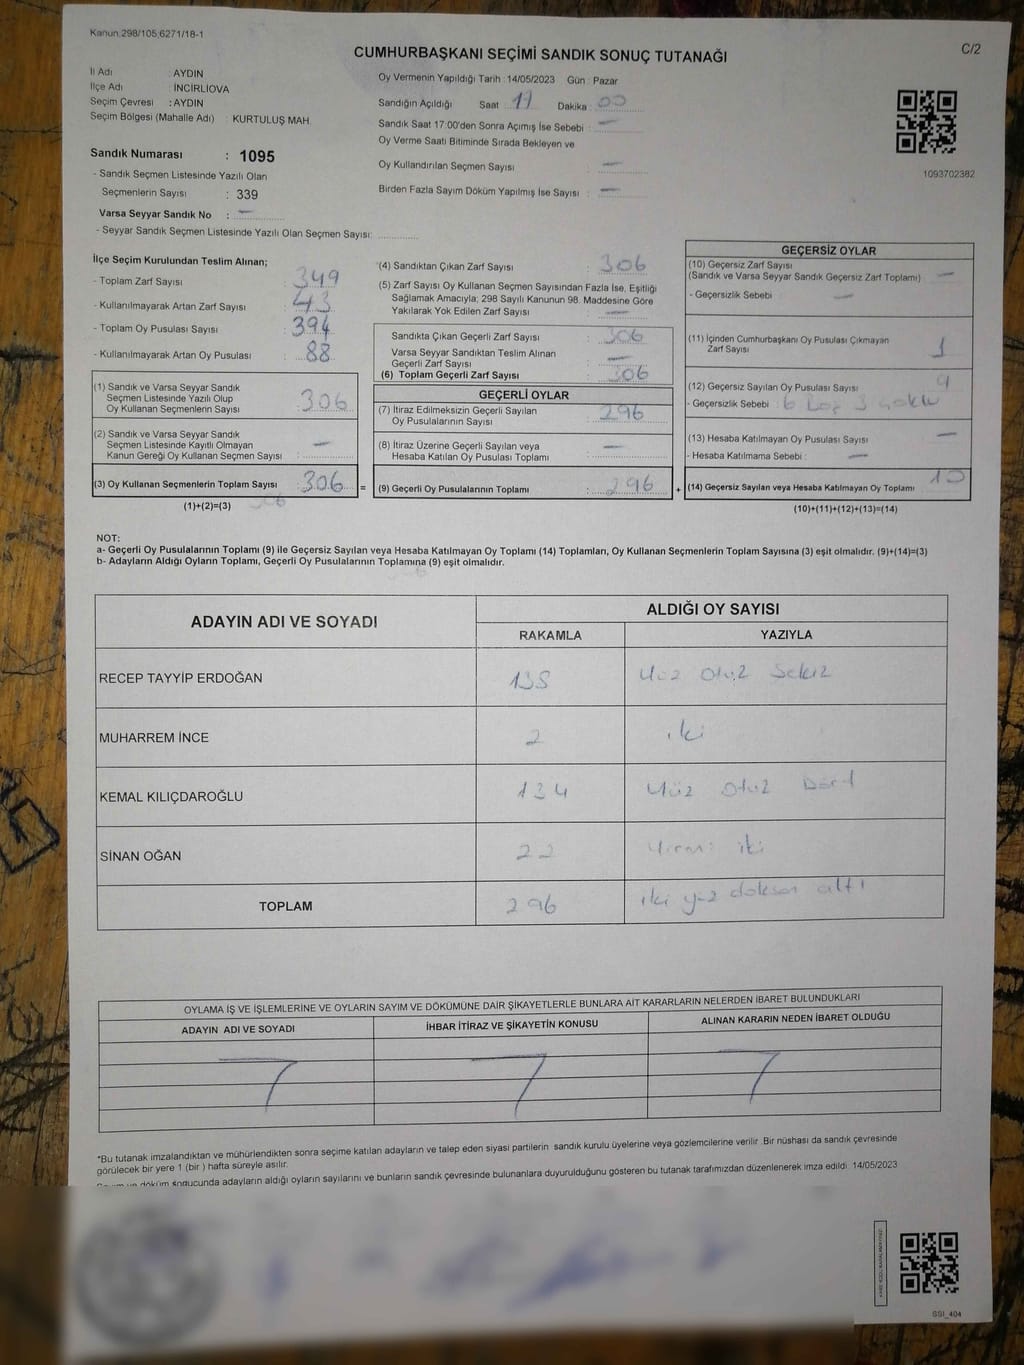 Kanun.298/105,6271/18-1
C/2
CUMHURBAŞKANI SEÇİMİ SANDIK SONUÇ TUTANAĞI
İl Adı : AYDIN
İlçe Adı : İNCİRLİOVA
Seçim Çevresi : AYDIN
Seçim Bölgesi (Mahalle Adı) : KURTULUŞ MAH.
Sandık Numarası : 1095
- Sandık Seçmen Listesinde Yazılı Olan
Seçmenlerin Sayısı : 339
Varsa Seyyar Sandık No : —
- Seyyar Sandık Seçmen Listesinde Yazılı Olan Seçmen Sayısı:
Oy Vermenin Yapıldığı Tarih : 14/05/2023 Gün : Pazar
Sandığın Açıldığı Saat : 17 Dakika : 00
Sandık Saat 17:00'den Sonra Açımış İse Sebebi : —
Oy Verme Saati Bitiminde Sırada Bekleyen ve
Oy Kullandırılan Seçmen Sayısı : —
Birden Fazla Sayım Döküm Yapılmış İse Sayısı : —
1093702382
İlçe Seçim Kurulundan Teslim Alınan;
- Toplam Zarf Sayısı : 349
- Kullanılmayarak Artan Zarf Sayısı : 43
- Toplam Oy Pusulası Sayısı : 394
- Kullanılmayarak Artan Oy Pusulası : 88
(1) Sandık ve Varsa Seyyar Sandık
Seçmen Listesinde Yazılı Olup
Oy Kullanan Seçmenlerin Sayısı : 306
(2) Sandık ve Varsa Seyyar Sandık
Seçmen Listesinde Kayıtlı Olmayan
Kanun Gereği Oy Kullanan Seçmen Sayısı : —
(3) Oy Kullanan Seçmenlerin Toplam Sayısı : 306
(1)+(2)=(3) 306
(4) Sandıktan Çıkan Zarf Sayısı : 306
(5) Zarf Sayısı Oy Kullanan Seçmen Sayısından Fazla İse, Eşitliği
Sağlamak Amacıyla; 298 Sayılı Kanunun 98. Maddesine Göre
Yakılarak Yok Edilen Zarf Sayısı : —
Sandıkta Çıkan Geçerli Zarf Sayısı : 306
Varsa Seyyar Sandıktan Teslim Alınan
Geçerli Zarf Sayısı : —
(6) Toplam Geçerli Zarf Sayısı : 306
GEÇERLİ OYLAR
(7) İtiraz Edilmeksizin Geçerli Sayılan
Oy Pusulalarının Sayısı : 296
(8) İtiraz Üzerine Geçerli Sayılan veya
Hesaba Katılan Oy Pusulası Toplamı : —
= (9) Geçerli Oy Pusulalarının Toplamı : 296
GEÇERSİZ OYLAR
(10) Geçersiz Zarf Sayısı
(Sandık ve Varsa Seyyar Sandık Geçersiz Zarf Toplamı) : —
- Geçersizlik Sebebi : —
(11) İçinden Cumhurbaşkanı Oy Pusulası Çıkmayan
Zarf Sayısı : 1
(12) Geçersiz Sayılan Oy Pusulası Sayısı : 9
- Geçersizlik Sebebi : 6 boş 3 çoklu
(13) Hesaba Katılmayan Oy Pusulası Sayısı : —
- Hesaba Katılmama Sebebi : —
+ (14) Geçersiz Sayılan veya Hesaba Katılmayan Oy Toplamı : 10
(10)+(11)+(12)+(13)=(14)
NOT:
a- Geçerli Oy Pusulalarının Toplamı (9) ile Geçersiz Sayılan veya Hesaba Katılmayan Oy Toplamı (14) Toplamları, Oy Kullanan Seçmenlerin Toplam Sayısına (3) eşit olmalıdır. (9)+(14)=(3)
b- Adayların Aldığı Oyların Toplamı, Geçerli Oy Pusulalarının Toplamına (9) eşit olmalıdır.
ADAYIN ADI VE SOYADI
ALDIĞI OY SAYISI
RAKAMLA YAZIYLA
RECEP TAYYİP ERDOĞAN 138 Yüz Otuz Sekiz
MUHARREM İNCE 2 iki
KEMAL KILIÇDAROĞLU 134 Yüz Otuz Dört
SİNAN OĞAN 22 Yirmi iki
TOPLAM 296 iki yüz doksan altı
OYLAMA İŞ VE İŞLEMLERİNE VE OYLARIN SAYIM VE DÖKÜMÜNE DAİR ŞİKAYETLERLE BUNLARA AİT KARARLARIN NELERDEN İBARET BULUNDUKLARI
ADAYIN ADI VE SOYADI İHBAR İTİRAZ VE ŞİKAYETİN KONUSU ALINAN KARARIN NEDEN İBARET OLDUĞU
*Bu tutanak imzalandıktan ve mühürlendikten sonra seçime katılan adayların ve talep eden siyasi partilerin sandık kurulu üyelerine veya gözlemcilerine verilir. Bir nüshası da sandık çevresinde
görülecek bir yere 1 (bir ) hafta süreyle asılır.
ve döküm sonucunda adayların aldığı oyların sayılarını ve bunların sandık çevresinde bulunanlara duyurulduğunu gösteren bu tutanak tarafımızdan düzenlenerek imza edildi. 14/05/2023
SSI_404